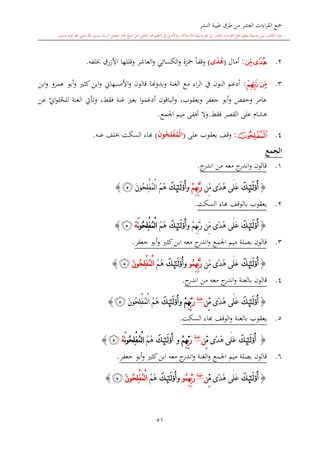 جمع القراءات العشر من طرق طيبة النشر
٢. ﴿هُدٗى﴾: أمال (هُدَى) وقفاً حمزة والكسائي والعاشر وقللها الأزرق بخلفه.
٣. ﴿مِّن رَّبِّهِمۡ﴾: أدغم النون في الراء مع الغنة وبدونها قالون والأصبهاني وأبو عمرو وابن كثير وابن
عامر وحفص وأبو جعفر ويعقوب، والباقون أدغموا بغير غنة فقط، وتأتي الغنة للحلواني عن
هشام على القصر فقط. ولا تخفى ميم الجمع.
٤. ﴿ٱلۡمُفۡلِحُونَ﴾: وقف يعقوب على (الْمُفْلِحُونَ) بهاء السكت بخلف عنه.
الجمع
١. قالون واندرج معه من اندرج.
﴿ أُوْلَٰٓئِكَ عَلَىٰ هُدٗى مِّن رَّبِّهِمۡ وَأُوْلَٰٓئِكَ هُمُ ٱلۡمُفۡلِحُونَ ٥ ﴾
٢. يعقوب بالوقف بهاء السكت.
﴿ أُوْلَٰٓئِكَ عَلَىٰ هُدٗى مِّن رَّبِّهِمۡ وَأُوْلَٰٓئِكَ هُمُ ٱلۡمُفۡلِحُونَهْ ٥ ﴾
٣. قالون بصلة ميم الجمع واندرج معه ابن كثير وأبو جعفر.
﴿ أُوْلَٰٓئِكَ عَلَىٰ هُدٗى مِّن رَّبِّهِمُو وَأُوْلَٰٓئِكَ هُمُ ٱلۡمُفۡلِحُونَ ٥ ﴾
٤. قالون بالغنة واندرج معه من اندرج.
﴿ أُوْلَٰٓئِكَ عَلَىٰ هُدٗى مِّن رَّبِّهِمۡ وَأُوْلَٰٓئِكَ هُمُ ٱلۡمُفۡلِحُونَ ٥ ﴾
٥. يعقوب بالغنة والوقف بهاء السكت.
﴿ أُوْلَٰٓئِكَ عَلَىٰ هُدٗى مِّن رَّبِّهِمۡ وَأُوْلَٰٓئِكَ هُمُ ٱلۡمُفۡلِحُونَهْ ٥ ﴾
٦. قالون بصلة ميم الجمع والغنة واندرج معه ابن كثير وأبو جعفر.
﴿ أُوْلَٰٓئِكَ عَلَىٰ هُدٗى مِّن رَّبِّهِمُو وَأُوْلَٰٓئِكَ هُمُ ٱلۡمُفۡلِحُونَ ٥ ﴾
٥١